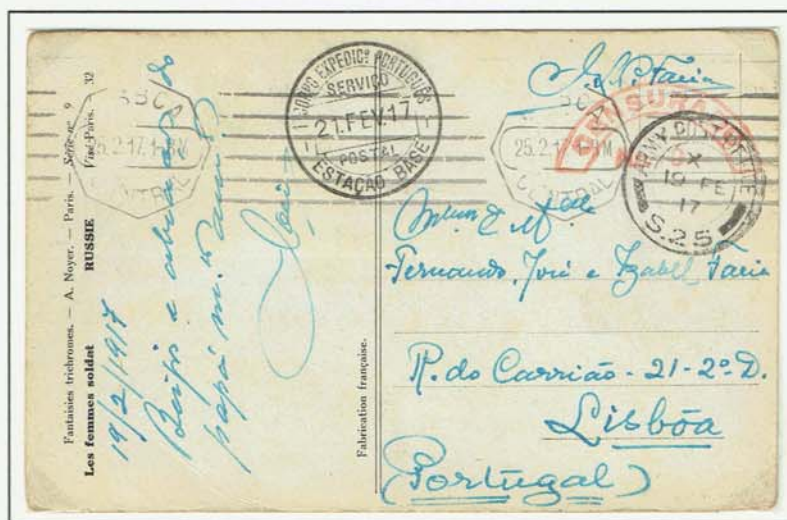 Fantaisies trichromes. — A. Noyer. — Paris. — Série nº 9
Les femmes soldat RUSSIE Visé Paris. 32
19/2/1917
Beijos e abraços do
papá m.to am.o
Fabrication française.
CORPO EXPEDICº PORTUGUÊS
SERVIÇO
21.FEV.17
POSTAL
ESTAÇÃO BASE
25.2.17.1-
CENTRAL
25.2.17.1-
CENTRAL
CENSURA
ARMY POST OFFICE
X
19 FE
17
S.25
Faria
Fernando, José e Izabel Faria
R. do Carrião - 21 - 2º D.
Lisbôa
(Portugal)